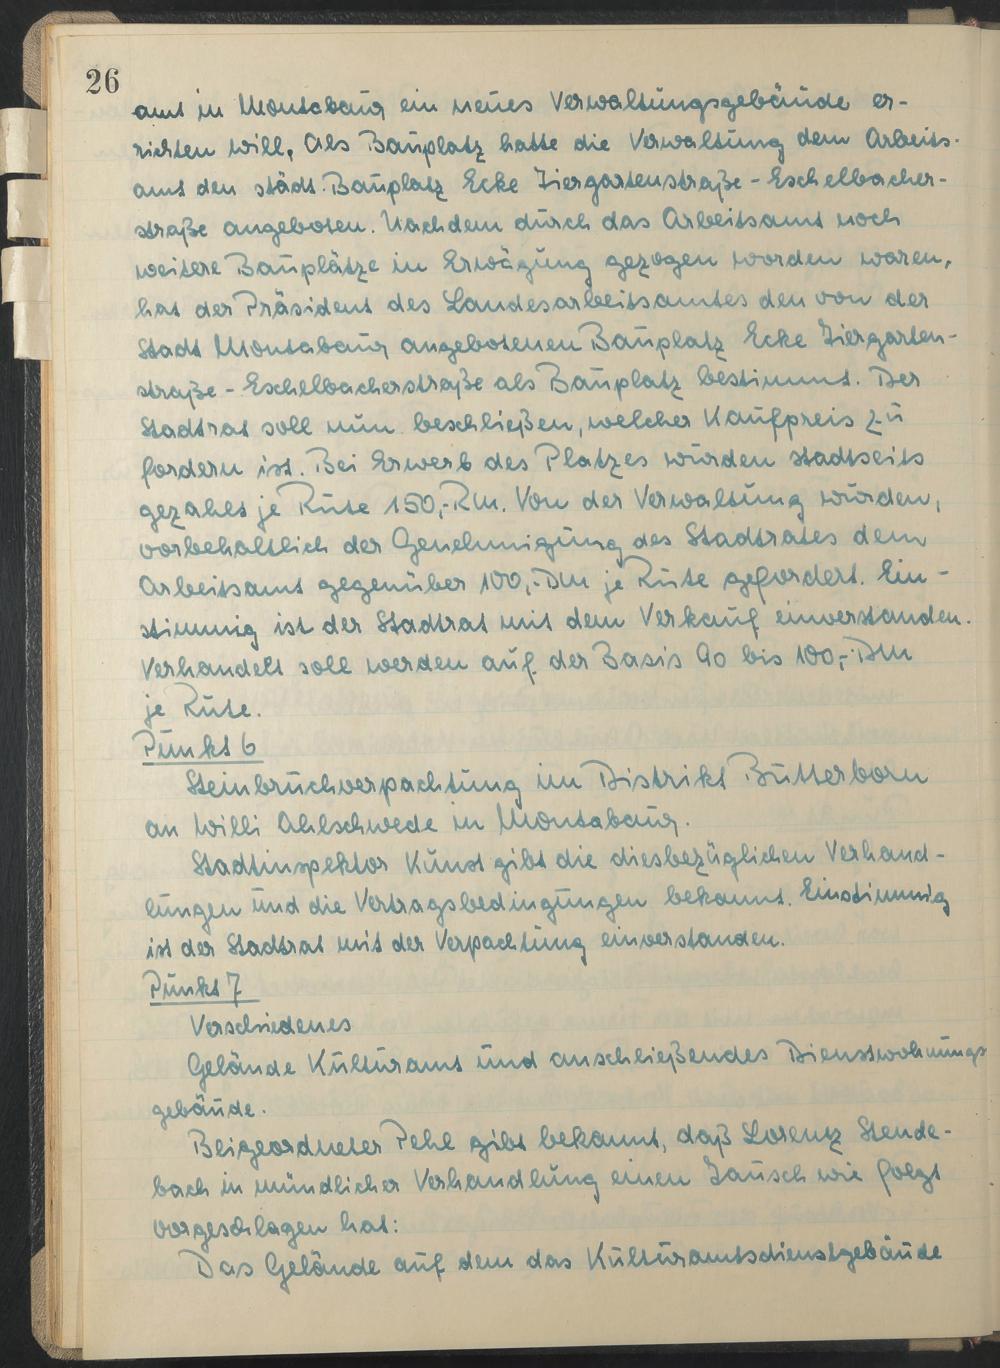 26
amt in Montabaur ein neues Verwaltungsgebäude er-
richten will. Als Bauplatz hatte die Verwaltung dem Arbeits-
amt den städt. Bauplatz Ecke Tiergartenstraße - Eschelbacher-
straße angeboten. Nachdem durch das Arbeitsamt noch
weitere Bauplätze in Erwägung gezogen worden waren,
hat der Präsident des Landesarbeitsamtes den von der
Stadt Montabaur angebotenen Bauplatz Ecke Tiergarten-
straße - Eschelbacherstraße als Bauplatz bestimmt. Der
Stadtrat soll nun beschließen, welcher Kaufpreis zu
fordern ist. Bei Erwerb des Platzes wurden stadtseits
gezahlt je Rute 150,- RM. Von der Verwaltung wurden,
vorbehaltlich der Genehmigung des Stadtrates dem
Arbeitsamt gegenüber 100,- DM je Rute gefordert. Ein-
stimmig ist der Stadtrat mit dem Verkauf einverstanden.
Verhandelt soll werden auf der Basis 90 bis 100,- DM
je Rute.
Punkt 6
Steinbruchverpachtung im Distrikt Butterborn
an Willi Ahlschwede in Montabaur.
Stadtinspektor Kunst gibt die diesbezüglichen Verhand-
lungen und die Vertragsbedingungen bekannt. Einstimmig
ist der Stadtrat mit der Verpachtung einverstanden.
Punkt 7
Verschiedenes
Gelände Kulturamt und anschließendes Dienstwohnungs
gebäude.
Beigeordneter Pehl gibt bekannt, daß Lorenz Stende-
bach in mündlicher Verhandlung einen Tausch wie folgt
vorgeschlagen hat:
Das Gelände auf dem das Kulturamtsdienstgebäude